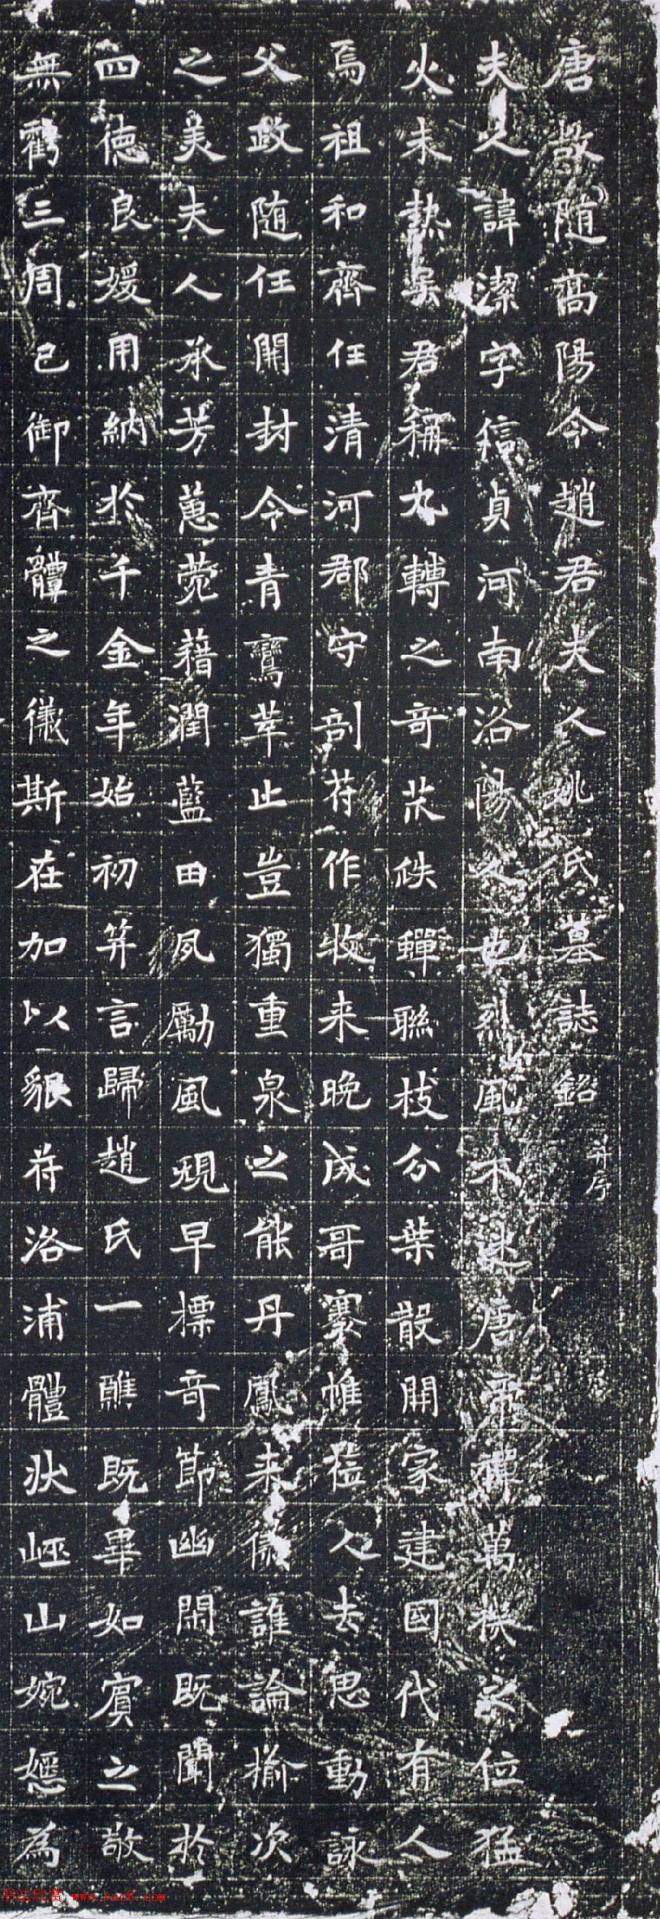 唐故随高陽令趙君夫人姚氏墓誌銘 并序
夫人諱潔字貞河南洛陽人也烈風不迷唐帝禪萬機之位猛
火未熱吴君稱九轉之奇茂佚蟬聯枝分葉散開家建國代有人
焉祖和齊任清河郡守剖苻作牧来晚成哥褰帷莅人去思動詠
父政随任開封令青鸞萃止豈獨重泉之能丹鳳来儀誰論揄次
之美夫人承芳蕙菀藉潤藍田夙勵風規早摽奇節幽閑既聞於
四徳良媛用納於千金年始初笄言歸趙氏一醮既畢如賓之敬
無虧三周已御齊體之儀斯在加以貌苻洛浦體狀巫山婉嫕為
书法欣赏 www.yac8.com